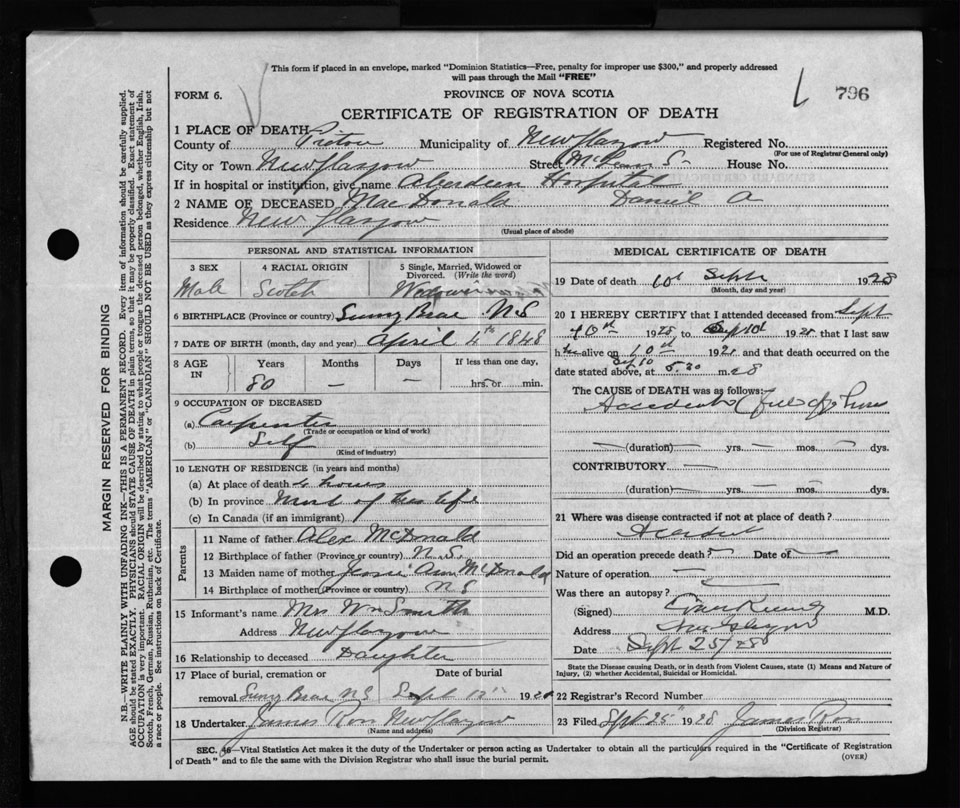 This form if placed in an envelope, marked "Dominion Statistics—Free, penalty for improper use $300," and properly addressed
will pass through the Mail "FREE"
FORM 6.
PROVINCE OF NOVA SCOTIA
796
CERTIFICATE OF REGISTRATION OF DEATH
1 PLACE OF DEATH
County of Pictou Municipality of New Glasgow Registered No.
(For use of Registrar General only)
City or Town New Glasgow Street House No.
If in hospital or institution, give name Aberdeen Hospital
2 NAME OF DECEASED MacDonald Daniel A
Residence New Glasgow
(Usual place of abode)
PERSONAL AND STATISTICAL INFORMATION
3 SEX 4 RACIAL ORIGIN 5 Single, Married, Widowed or
Divorced. (Write the word)
Male Scotch Widower
6 BIRTHPLACE (Province or country) Sunny Brae N.S
7 DATE OF BIRTH (month, day and year) April 4th 1848
8 AGE IN Years Months Days If less than one day,
80 — — hrs. or min.
9 OCCUPATION OF DECEASED
(a) Carpenter
(Trade or occupation or kind of work)
(b) Self
(Kind of industry)
10 LENGTH OF RESIDENCE (in years and months)
(a) At place of death hours
(b) In province Most of his life
(c) In Canada (if an immigrant)
Parents
11 Name of father Alex McDonald
12 Birthplace of father (Province or country) N.S.
13 Maiden name of mother Jessie Ann McDonald
14 Birthplace of mother (Province or country) N S
15 Informant's name Mrs Wm Smith
Address New Glasgow
16 Relationship to deceased Daughter
17 Place of burial, cremation or Date of burial
removal Sunny Brae N S Sept 12" 1928
18 Undertaker James Ross New Glasgow
(Name and address)
MEDICAL CERTIFICATE OF DEATH
19 Date of death 10th Sept 1928
(Month, day and year)
20 I HEREBY CERTIFY that I attended deceased from Sept
10th 1928 to Sept 10th 1928 that I last saw
h alive on 10th 1928 and that death occurred on the
date stated above, at 5.30 m.
The CAUSE OF DEATH was as follows:
Accident
(duration) yrs. mos. dys.
CONTRIBUTORY
(duration) yrs. mos. dys.
21 Where was disease contracted if not at place of death?
Accident
Did an operation precede death? Date of
Nature of operation
Was there an autopsy?
(Signed) M.D.
Address New Glasgow
Date Sept 25/28
State the Disease causing Death, or in death from Violent Causes, state (1) Means and Nature of
Injury, and (2) whether Accidental, Suicidal or Homicidal.
22 Registrar's Record Number
23 Filed Sept 25" 1928 James Ross
(Division Registrar)
SEC. 46—Vital Statistics Act makes it the duty of the Undertaker or person acting as Undertaker to obtain all the particulars required in the "Certificate of Registration
of Death" and to file the same with the Division Registrar who shall issue the burial permit.
(OVER)
MARGIN RESERVED FOR BINDING
N.B.—WRITE PLAINLY WITH UNFADING INK—THIS IS A PERMANENT RECORD. Every item of information should be carefully supplied.
AGE should be stated EXACTLY. PHYSICIANS should STATE CAUSE OF DEATH in plain terms, so that it may be properly classified. Exact statement of
OCCUPATION is very important. RACIAL ORIGIN will be described by stating to what people or tongue the deceased person belonged, whether English, Irish,
Scotch, French, German, Russian, Ruthenian, etc. The terms "AMERICAN" or "CANADIAN" SHOULD NOT BE USED as they express citizenship but not
a race or people. See instructions on back of Certificate.